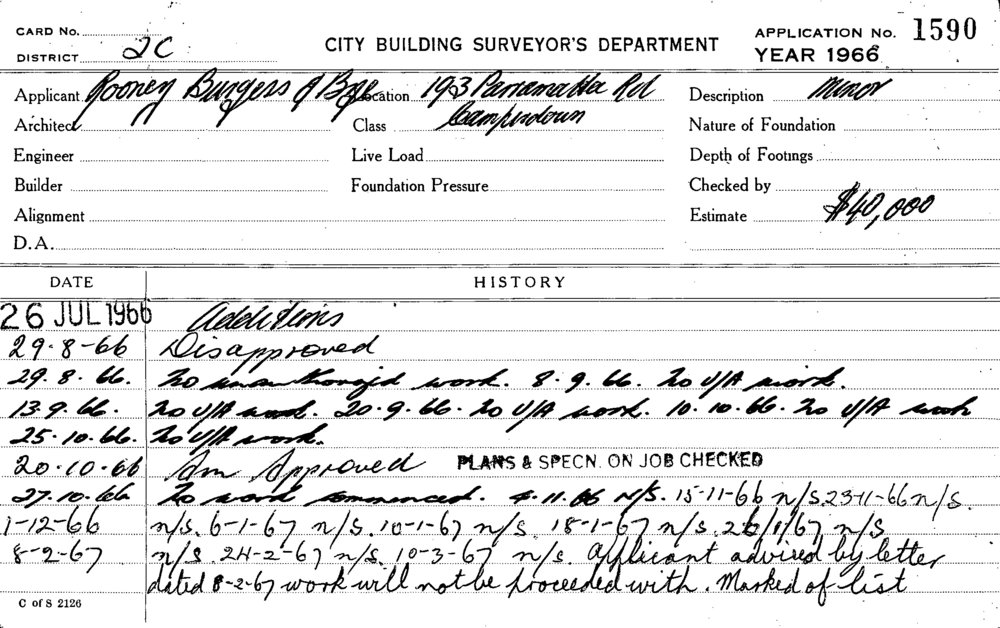 CARD No.
DISTRICT 2C
CITY BUILDING SURVEYOR'S DEPARTMENT
APPLICATION No. 1590
YEAR 1966
Applicant Rooney Burgess & Bye
Location 193 Parramatta Rd
Camperdown
Description Minor
Architect
Class
Nature of Foundation
Engineer
Live Load
Depth of Footings
Builder
Foundation Pressure
Checked by
Alignment
Estimate $40,000
D.A.
DATE HISTORY
26 JUL 1966 Additions
29-8-66 Disapproved
29.8.66. No unauthorised work. 8.9.66. No U/A work.
13.9.66. No U/A work. 20.9.66. No U/A work. 10.10.66. No U/A work
25.10.66. No U/A work.
20.10.66 Am Approved PLANS & SPECN. ON JOB CHECKED
27.10.66 No work commenced. 4.11.66 N/S. 15-11-66 n/s. 23-11-66 n/s.
1-12-66 n/s. 6-1-67 n/s. 10-1-67 n/s. 18-1-67 n/s. 26/1/67 n/s
8-2-67 n/s. 24-2-67 n/s. 10-3-67 n/s. Applicant advised by letter
dated 8-2-67 work will not be proceeded with. Marked of list
C of S 2126